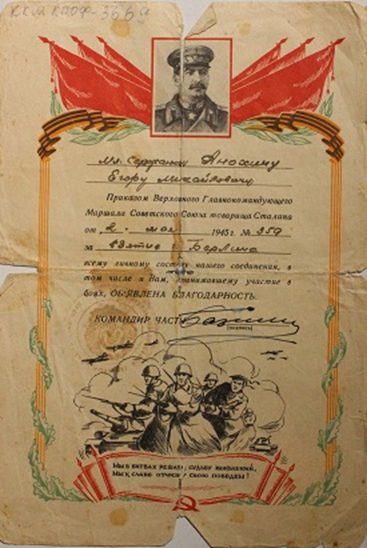 ККМ КПОФ-3669
Мл. Сержанту Анохину
Егору Михайловичу
Приказом Верховного Главнокомандующего
Маршала Советского Союза товарища Сталина
от 2. мая 1945 г. № 359
за взятие г. Берлина
всему личному составу нашего соединения, в
том числе и Вам, принимавшему участие в
боях, ОБЪЯВЛЕНА БЛАГОДАРНОСТЬ.
КОМАНДИР ЧАСТИ
(подпись)
МЫ В БИТВАХ РЕШАЕМ СУДЬБУ ПОКОЛЕНИЙ,
МЫ К СЛАВЕ ОТЧИЗНУ СВОЮ ПОВЕДЕМ!